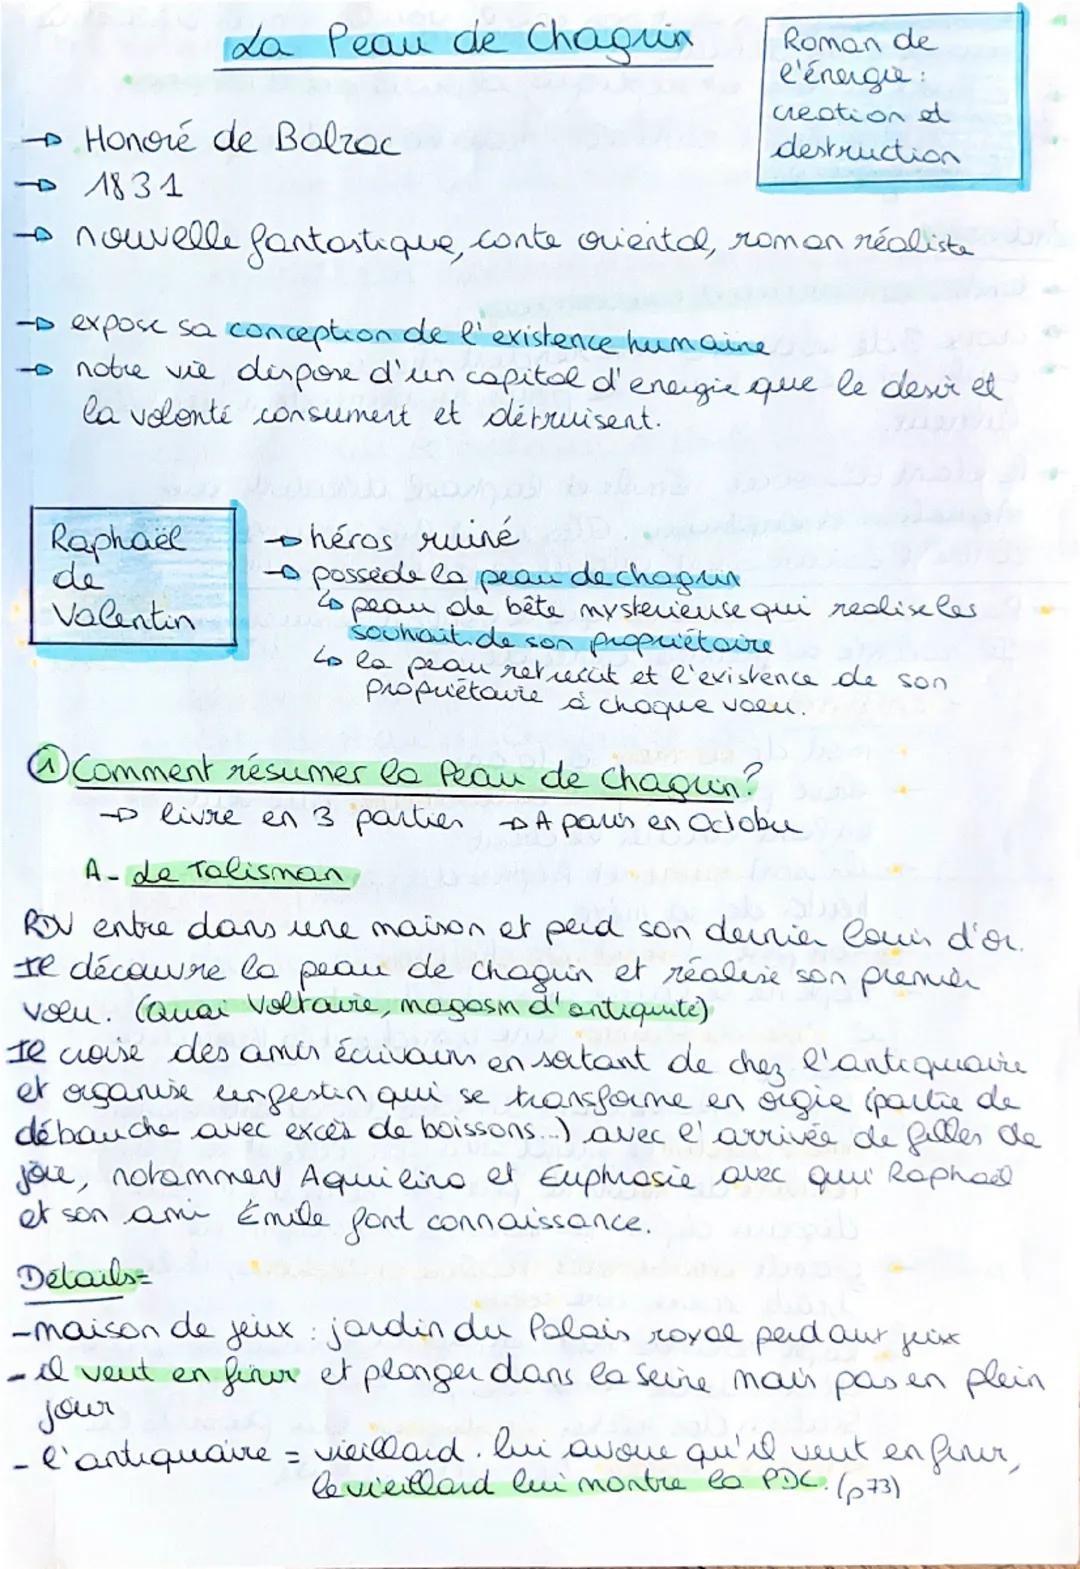 La Peau de Chagrin
Roman de
l'énergie :
création et
destruction
→ Honoré de Balzac
→ 1831
→ nouvelle fantastique, conte oriental, roman réaliste
→ expose sa conception de l'existence humaine
→ notre vie dispose d'un capital d'energie que le desir et
la volonté consument et détruisent.
Raphaël
de
Valentin
→ héros ruiné
→ possède la peau de chagrin
↳ peau de bête mysterieuse qui realise les
souhait de son propriétaire
↳ la peau retrecit et l'existence de son
propriétaire à chaque voeu.
① Comment résumer la Peau de Chagrin?
→ livre en 3 parties → A paris en Octobre
A- Le Talisman
RDV entre dans une maison et perd son dernier louis d'or.
Il découvre la peau de chagrin et réalise son premier
voeu. (Quai Voltaire, magasin d'antiquité)
Il croise des amis écrivains en sortant de chez l'antiquaire
et organise un festin qui se transforme en orgie (partie de
débauche avec excès de boissons...) avec l'arrivée de filles de
joie, notamment Aquilina et Euphrasie avec qui Raphaël
et son ami Émile font connaissance.
Détails=
-maison de jeux : jardin du Palais royal perd aux jeux
- il veut en finir et plonger dans la Seine mais pas en plein
jour
- l'antiquaire = vieillard. lui avoue qu'il veut en finir,
le vieillard lui montre la PDC. (p73)